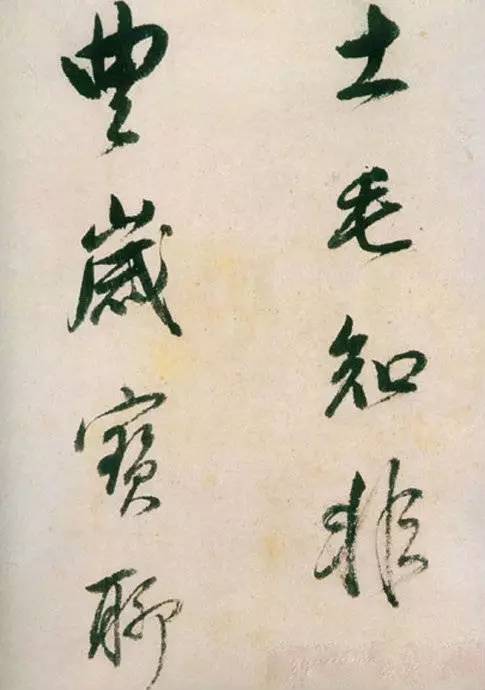 土毛知非
豊歲寶聊